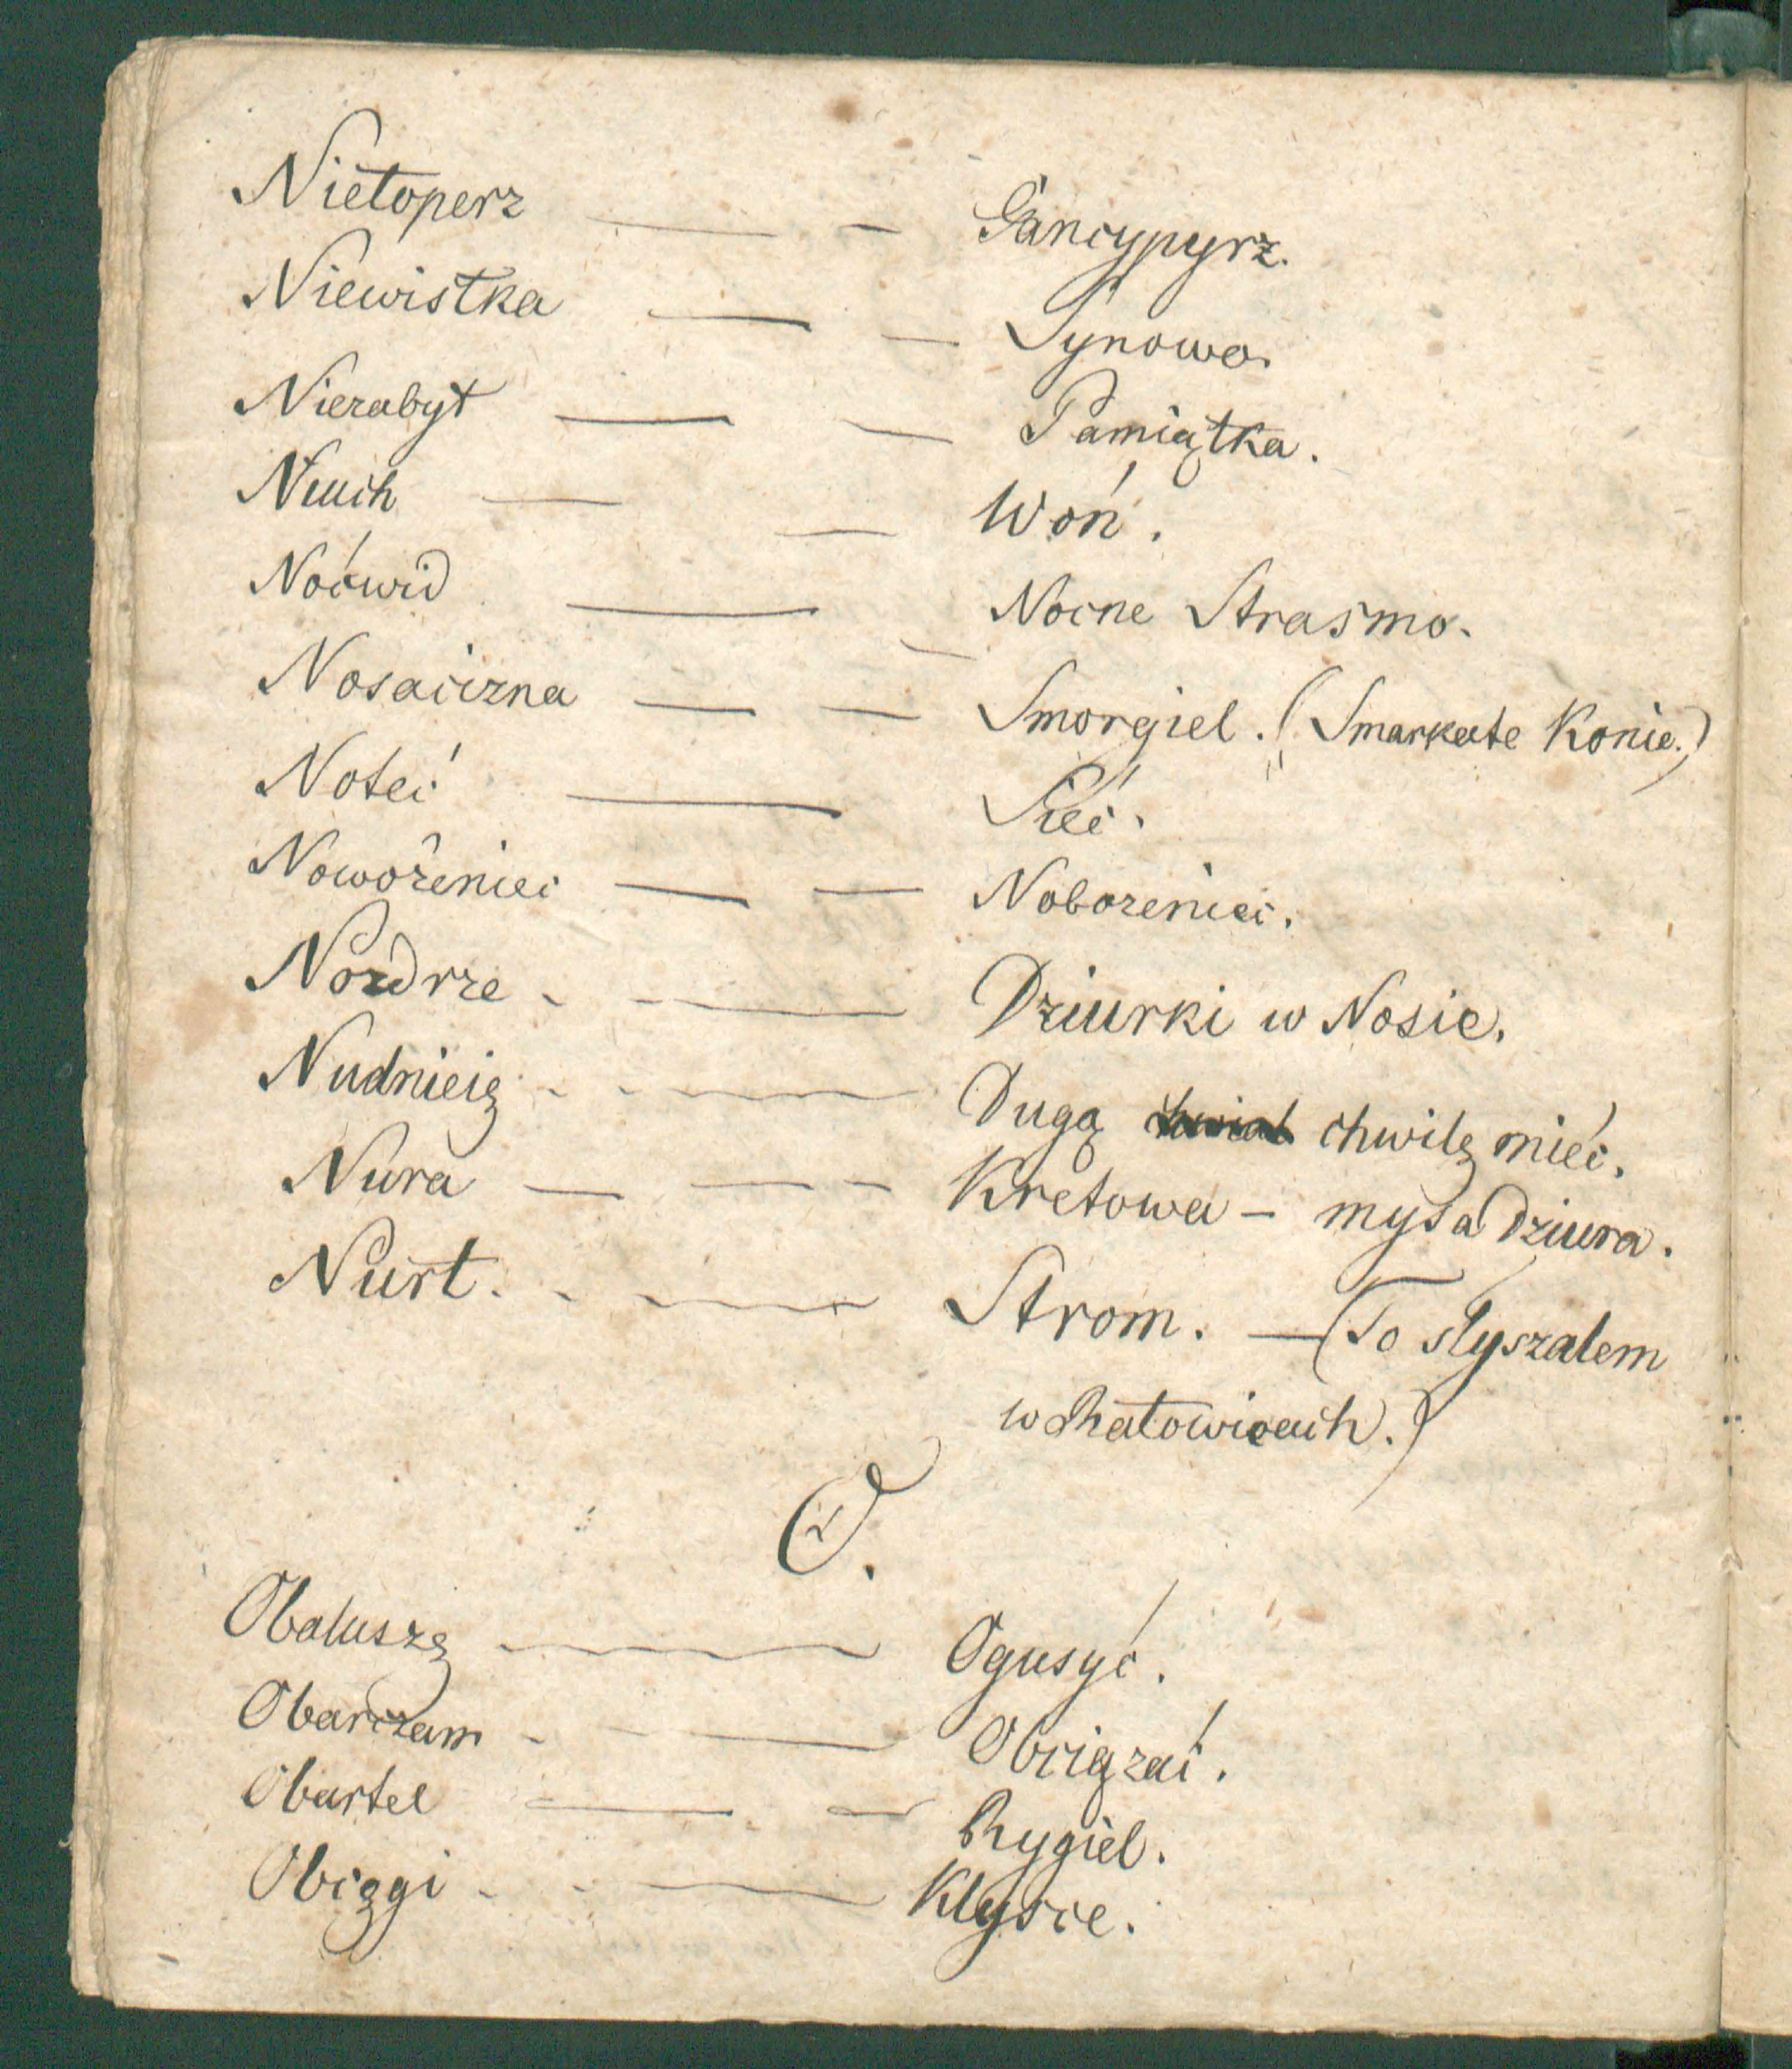 Nietoperz — — Gancypyrz.
Niewistka — — Synowa.
Niezabyt — — Pamiątka.
Niuch — — Woń.
Noćwid — — Nocne Strasmo.
Nosacizna — — Smorgiel. (Smarkate Konie.)
Noteć — Sieć.
Nowożeniec — — Nobożeniec.
Nozdrze - - — Dziurki w Nosie.
Nudnieię - - — Dugą chwilę mieć.
Nura — — - Kretowa — mysa Dziura.
Nurt. - — Strom. — (To słyszałem
w Ratowicach.)
O.
Obałuszę — Ogusyć.
Obarczam - — Obciązać.
Obartel — — Rygiel.
Obcęgi - - — Klysce.